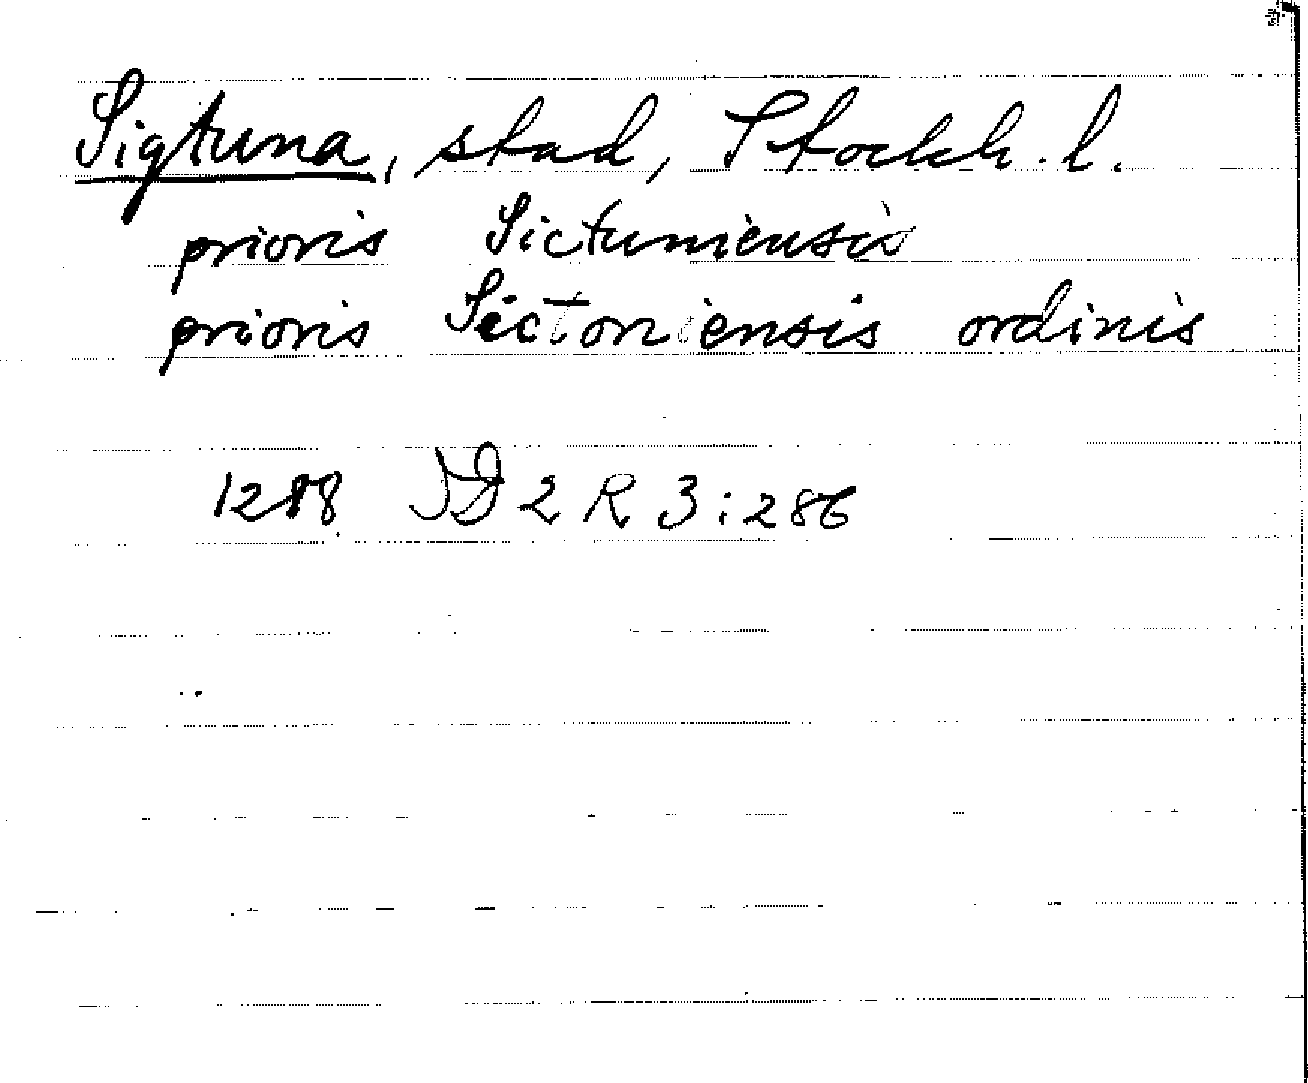 Sigtuna, stad, Stockh. l.
prioris Sictuniensis
prioris Sictoniensis ordinis
1288 DD 2 R 3:286